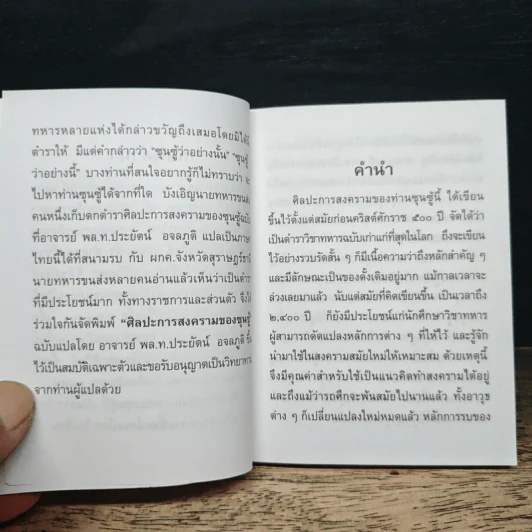 ทหารหลายแห่งได้กล่าวขวัญถึงเสมอโดยมิได้
ตำราให้ มีแต่คำกล่าวว่า “ซุนซู้ว่าอย่างนั้น” “ซุนซู้
ว่าอย่างนี้” บางท่านที่สนใจอยากรู้ก็ไม่ทราบว่า
ไปหาท่านซุนซู้ได้จากที่ใด บังเอิญนายทหารขนส่ง
คนหนึ่งเก็บตกตำราศิลปะการสงครามของซุนซู้
ที่อาจารย์ พล.ท.ประยัตน์ อจลภูติ แปลเป็นภาษา
ไทยนี้ได้ที่สนามรบ กับ ผกค.จังหวัดสุราษฎร์
นายทหารขนส่งหลายคนอ่านแล้วเห็นว่าเป็นตำรา
ที่มีประโยชน์มาก ทั้งทางราชการและส่วนตัว จึงได้
ร่วมใจกันจัดพิมพ์ “ศิลปะการสงครามของซุนซู้
ฉบับแปลโดย อาจารย์ พล.ท.ประยัตน์ อจลภูติ
ไว้เป็นสมบัติเฉพาะตัวและขอรับอนุญาตเป็นวิทยาทาน
จากท่านผู้แปลด้วย
คำนำ
ศิลปะการสงครามของท่านซุนซู้นี้ ได้เขียน
ขึ้นไว้ตั้งแต่สมัยก่อนคริสต์ศักราช ๕๐๐ ปี จัดได้ว่า
เป็นตำราวิชาทหารฉบับเก่าแก่ที่สุดในโลก ถึงจะเขียน
ไว้อย่างรวบรัดสั้น ๆ ก็มีเนื้อความว่าถึงหลักสำคัญ ๆ
และมีลักษณะเป็นของดั้งเดิมอยู่มาก แม้กาลเวลาจะ
ล่วงเลยมาแล้ว นับแต่สมัยที่คิดเขียนขึ้น เป็นเวลาถึง
๒,๔๐๐ ปี ก็ยังมีประโยชน์แก่นักศึกษาวิชาทหาร
ผู้สามารถดัดแปลงหลักการต่าง ๆ ที่ให้ไว้ และรู้จัก
นำมาใช้ในสงครามสมัยใหม่ให้เหมาะสม ด้วยเหตุนี้
จึงมีคุณค่าสำหรับใช้เป็นแนวคิดทำสงครามได้อยู่
และถึงแม้ว่ารถศึกจะพ้นสมัยไปนานแล้ว ทั้งอาวุธ
ต่าง ๆ ก็เปลี่ยนแปลงใหม่หมดแล้ว หลักการรบของ